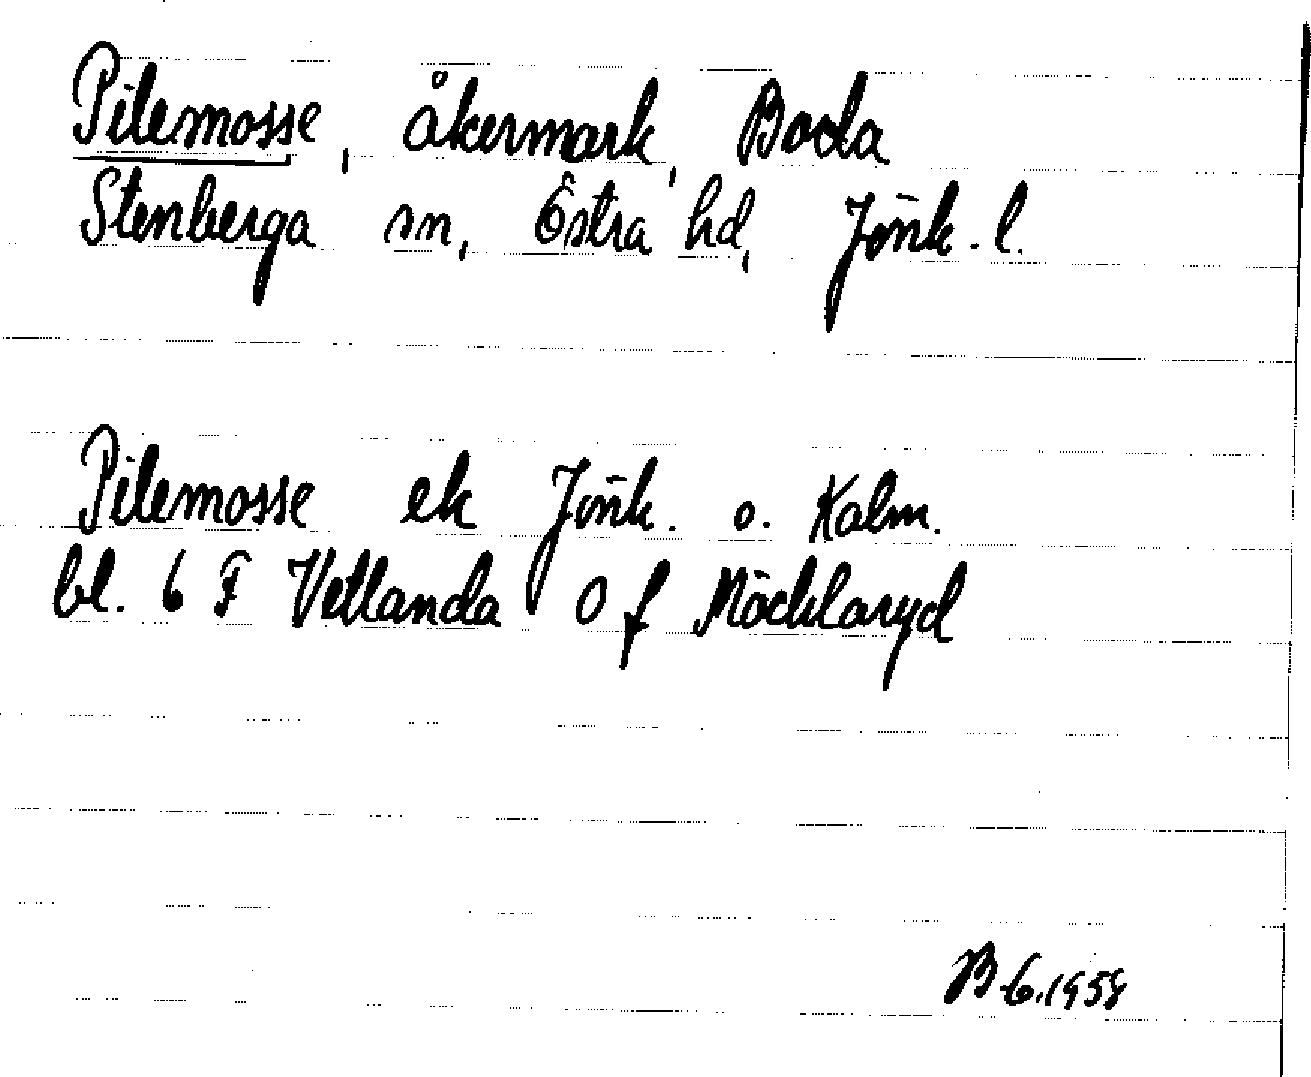 Pilemosse, åkermark, Boda
Stenberga sn, Östra hd, Jönk. l.
Pilemosse ek Jönk. o. Kalm.
bl. 6 F Vetlanda 0 f Möcklaryd
B 6.1958